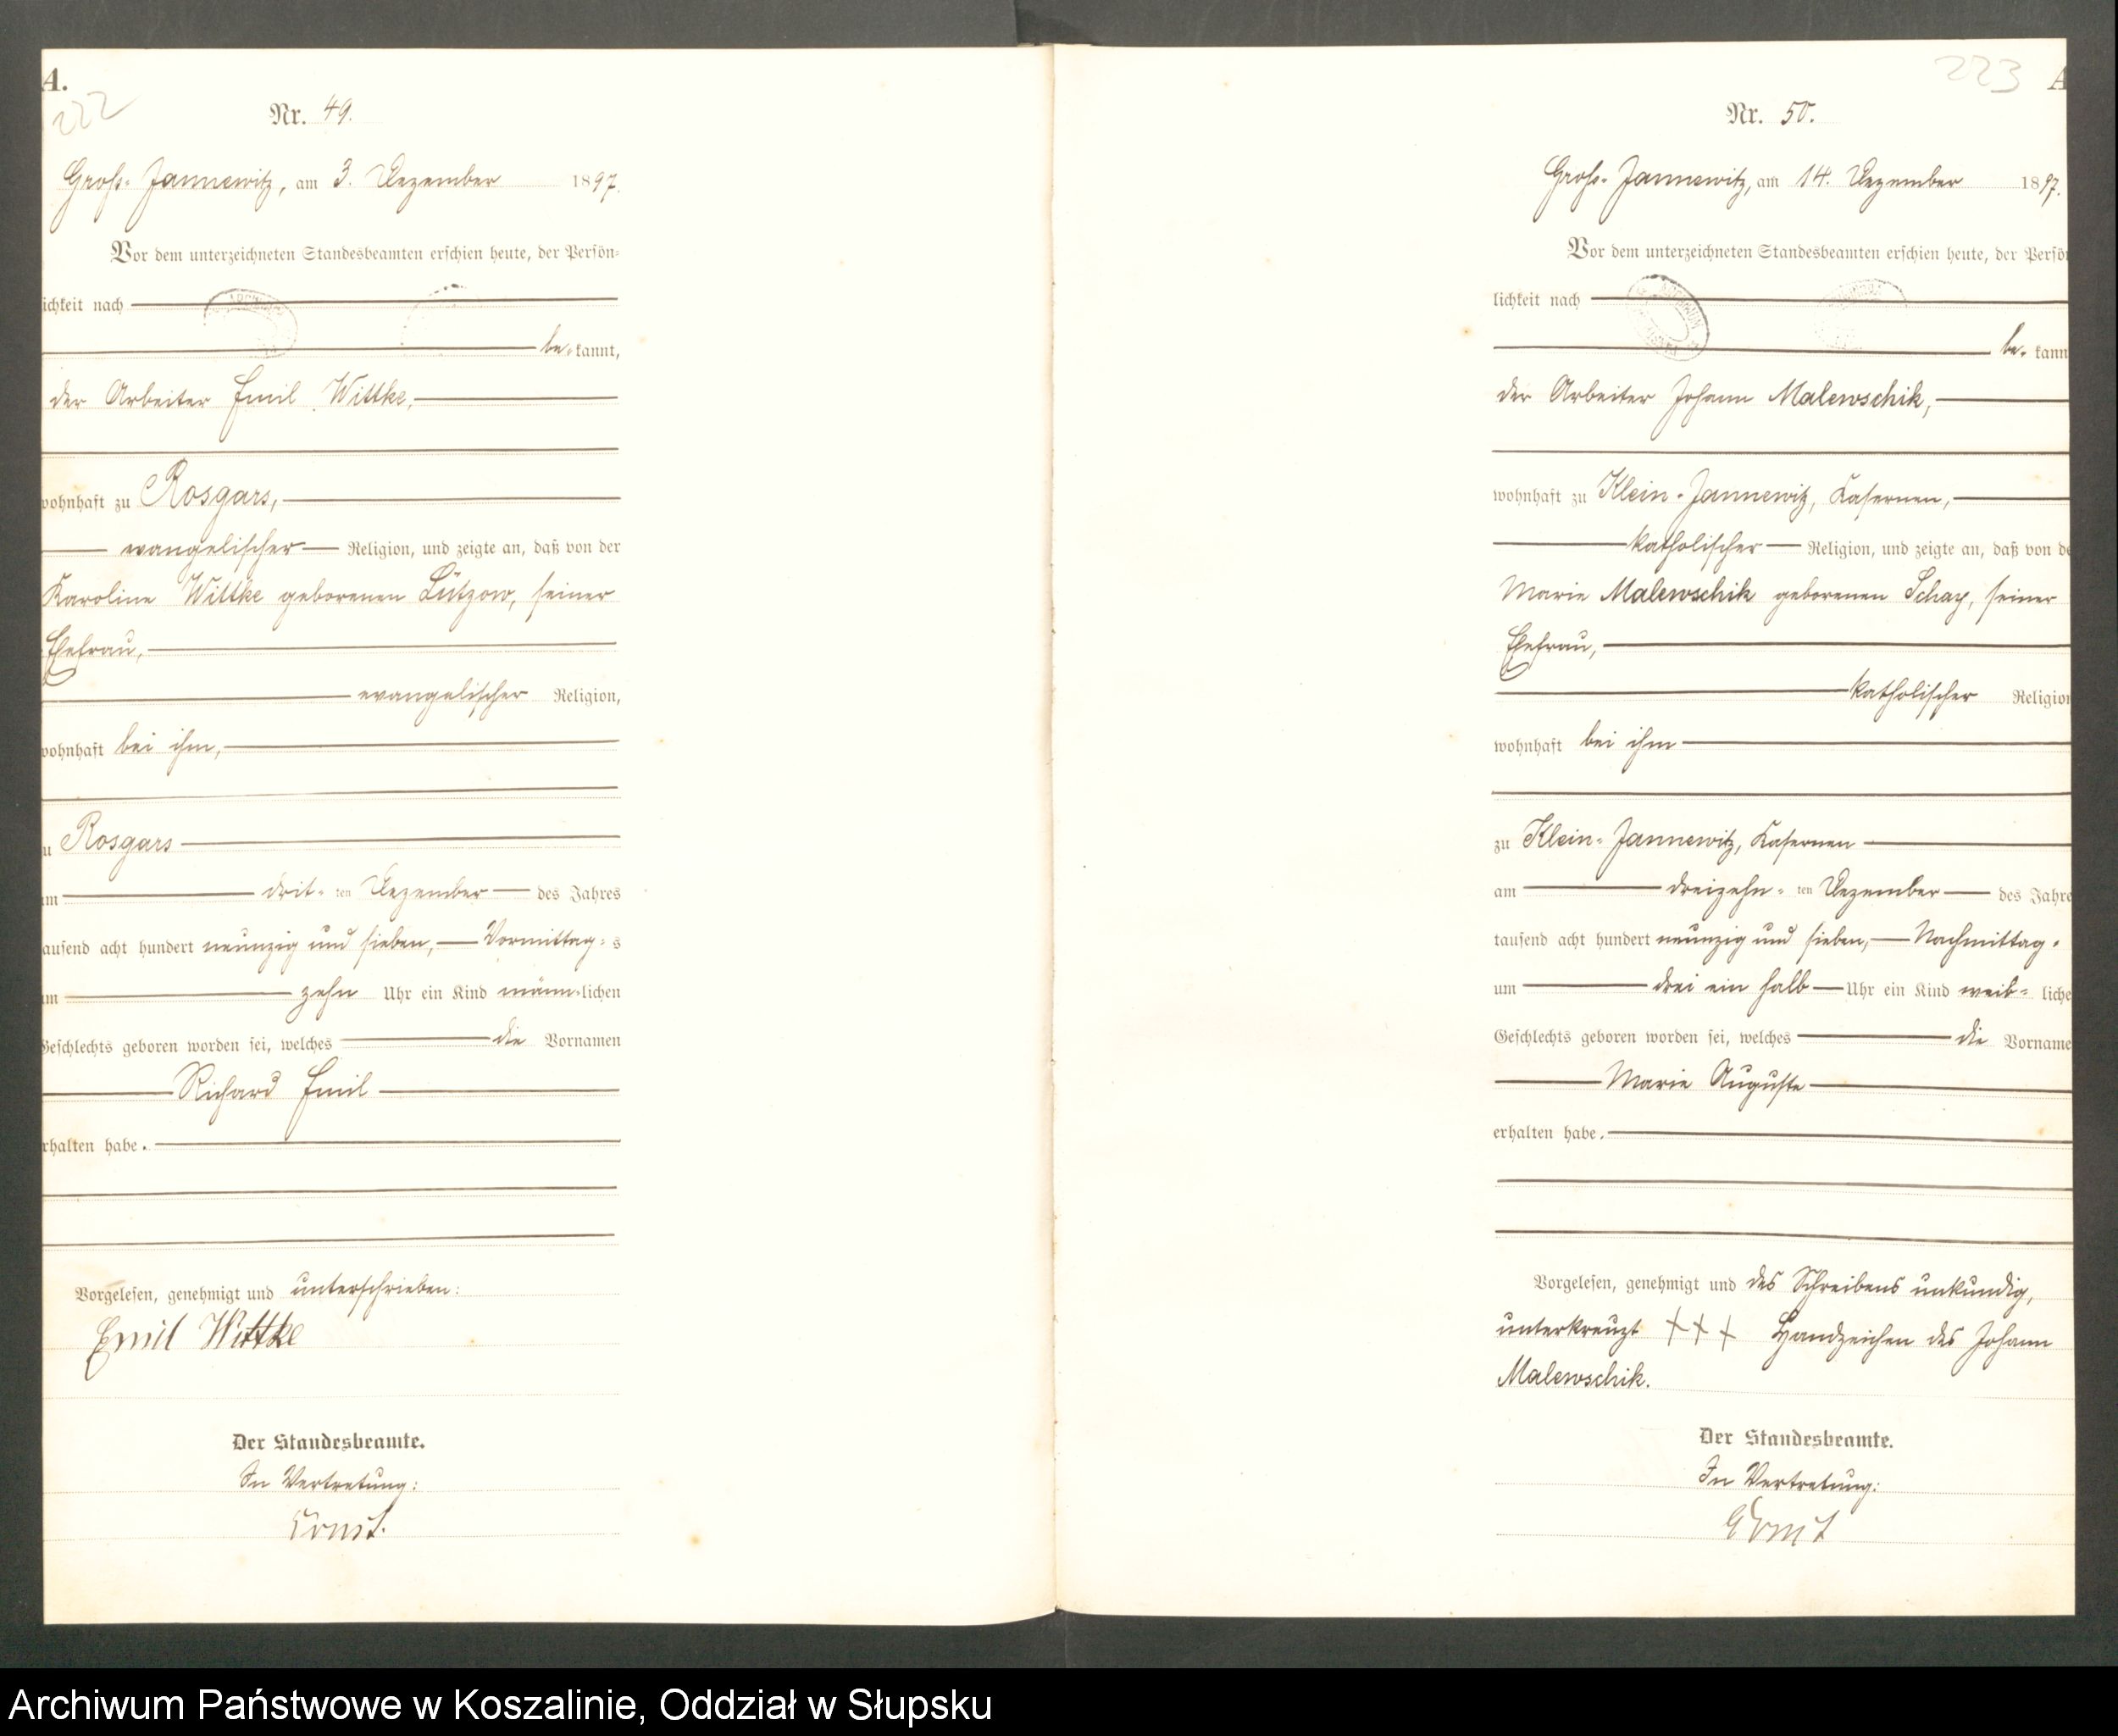 A.
222
Nr. 49.
Groß-Jannewitz, am 3. Dezember 1897.
Vor dem unterzeichneten Standesbeamten erschien heute, der Persön-
ichkeit nach
be-kannt,
der Arbeiter Emil Wittke,
wohnhaft zu Rosgars,
evangelischer Religion, und zeigte an, daß von der
Karoline Wittke geborenen Lützow, seiner
Ehefrau,
evangelischer Religion,
wohnhaft bei ihm,
u Rosgars
m drit-ten Dezember des Jahres
ausend acht hundert neunzig und sieben, Vormittag-s
um zehn Uhr ein Kind männ-lichen
Geschlechts geboren worden sei, welches die Vornamen
Richard Emil
rhalten habe.
Vorgelesen, genehmigt und unterschrieben:
Emil Wittke
Der Standesbeamte.
In Vertretung:
223
A
Nr. 50.
Groß-Jannewitz, am 14. Dezember 1897.
Vor dem unterzeichneten Standesbeamten erschien heute, der Persö
lichkeit nach
be-kann
der Arbeiter Johann Malewschik,
wohnhaft zu Klein-Jannewitz, Kasernen,
katholischer Religion, und zeigte an, daß von de
Marie Malewschik geborenen seiner
Ehefrau,
katholischer Religion
wohnhaft bei ihm
zu Klein-Jannewitz, Kasernen
am dreizehn-ten Dezember des Jahre
tausend acht hundert neunzig und sieben, Nachmittag-
um drei ein halb Uhr ein Kind weib-liche
Geschlechts geboren worden sei, welches die Vorname
Marie Auguste
erhalten habe.
Vorgelesen, genehmigt und des Schreibens unkundig,
unterkreuzt +++ Handzeichen des Johann
Malewschik.
Der Standesbeamte.
In Vertretung:
Archiwum Państwowe w Koszalinie, Oddział w Słupsku